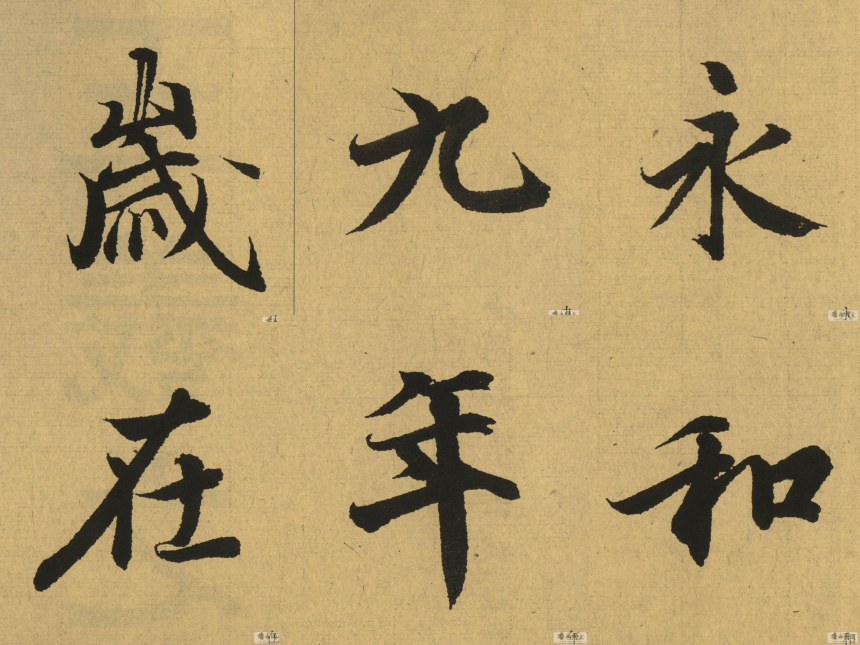 永和
九年
歲在